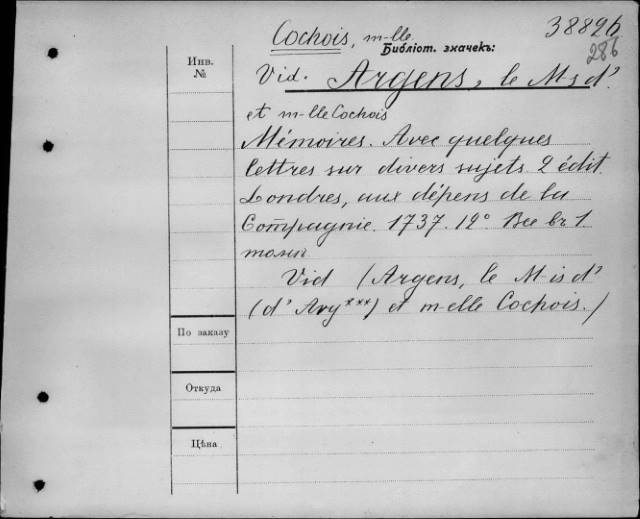 Cochois, m-lle 38826
Библіот. значекъ: 286
Инв.
№
Vid. Argens, le M-s d'
et m-lle Cochois
Mémoires. Avec quelques
lettres sur divers sujets. 2 édit.
Londres, aux dépens de la
Compagnie. 1737. 12° Все въ 1
томѣ
Vid (Argens, le M-is d'
(d' Arg***) et m-elle Cochois.)
По заказу
Откуда
Цѣна